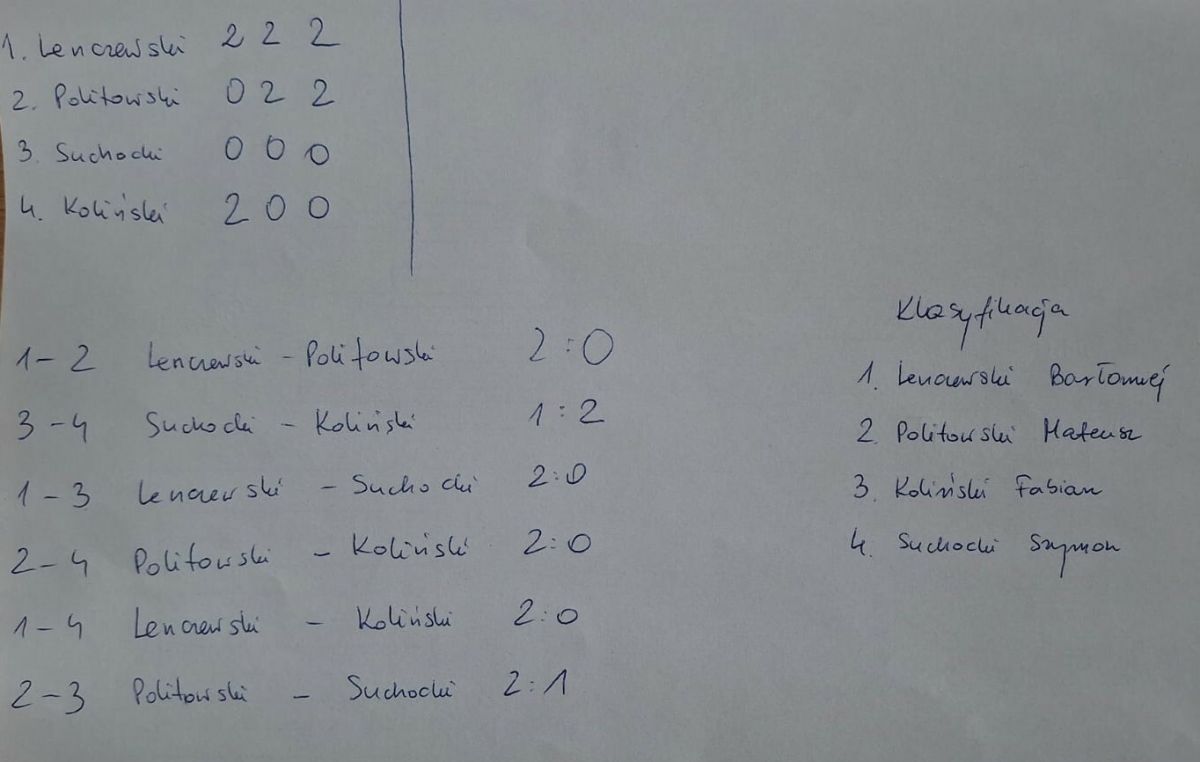 1. Lenczewski 2 2 2
2. Politowski 0 2 2
3. Suchocki 0 0 0
4. Koliński 2 0 0
1-2 Lenczewski - Politowski 2:0
3-4 Suchocki - Koliński 1:2
1-3 Lenczewski - Suchocki 2:0
2-4 Politowski - Koliński 2:0
1-4 Lenczewski - Koliński 2:0
2-3 Politowski - Suchocki 2:1
Klasyfikacja
1. Lenczewski Bartłomiej
2. Politowski Mateusz
3. Koliński Fabian
4. Suchocki Szymon